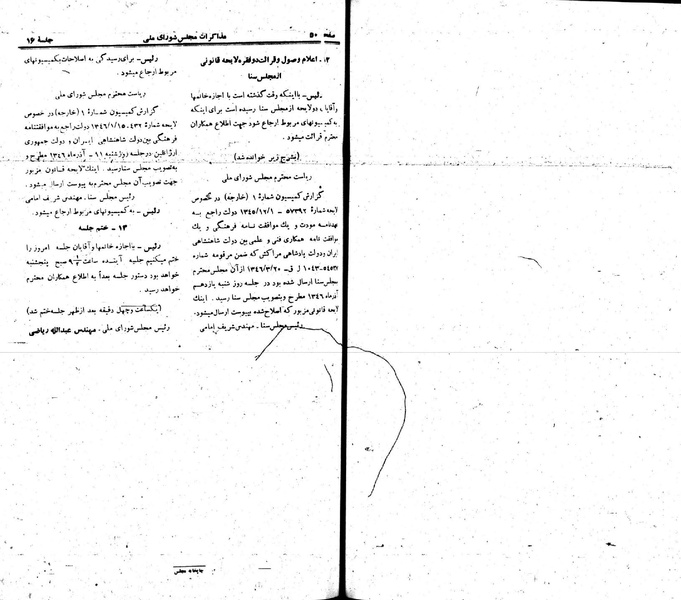 صفحه ۵۰
مذاکرات مجلس شورای ملی
جلسه ۱۶
۱۲ـ اعلام وصول و قرائت دو فقره لایحه قانونی
از مجلس سنا
رئیس ـ با اینکه وقت گذشته است با اجازه خانمها
و آقایان دو لایحه از مجلس سنا رسیده است برای اینکه
به کمیسیونهای مربوط ارجاع شود جهت اطلاع همکاران
محترم قرائت میشود.
(بشرح زیر خوانده شد)
ریاست محترم مجلس شورای ملی
گزارش کمیسیون شمارۀ ۱ (خارجه) در خصوص
لایحه شمارۀ ۵۷۳۹۲ ـ ۱۳۴۵/۱۲/۱ دولت راجع به
عهدنامه مودت و یک موافقت نامه فرهنگی و یک
موافقت نامه همکاری فنی و علمی بین دولت شاهنشاهی
ایران و دولت پادشاهی مراکش که ضمن مرقومه شماره
۱۰۴۳ـ۵۴۵ ل ق ـ ۱۳۴۶/۳/۲۰ از آن مجلس محترم
به مجلس سنا ارسال شده بود در جلسه روز شنبه یازدهم
آذرماه ۱۳۴۶ مطرح و بتصویب مجلس سنا رسید. اینک
لایحه قانونی مزبور که اصلاح شده بپیوست ارسال میشود.
رئیس مجلس سنا ـ مهندس شریف امامی
رئیس ـ برای رسیدگی به اصلاحات بکمیسیونهای
مربوط ارجاع میشود.
ریاست محترم مجلس شورای ملی
گزارش کمیسیون شمارۀ ۱ (خارجه) در خصوص
لایحه شمارۀ ۴۳۲ـ ۱۳۴۶/۱/۱۵ دولت راجع به موافقتنامه
فرهنگی بین دولت شاهنشاهی ایران و دولت جمهوری
آرژانتین در جلسه روز شنبه ۱۱ ـ آذرماه ۱۳۴۶ مطرح و
به تصویب مجلس سنا رسید. اینک لایحه قانون مزبور
جهت تصویب آن مجلس محترم به پیوست ارسال میشود.
رئیس مجلس سنا. مهندس شریف امامی
رئیس ـ به کمیسیونهای مربوط ارجاع میشود.
۱۳ ـ ختم جلسه
رئیس ـ با اجازه خانمها و آقایان جلسه امروز را
ختم میکنیم جلسه آینده ساعت ۹ ۱/۲ صبح پنجشنبه
خواهد بود دستور جلسه بعداً به اطلاع همکاران محترم
خواهد رسید.
(یکساعت و چهل دقیقه بعد از ظهر جلسه ختم شد)
رئیس مجلس شورای ملی ـ مهندس عبدالله ریاضی
چاپخانه مجلس